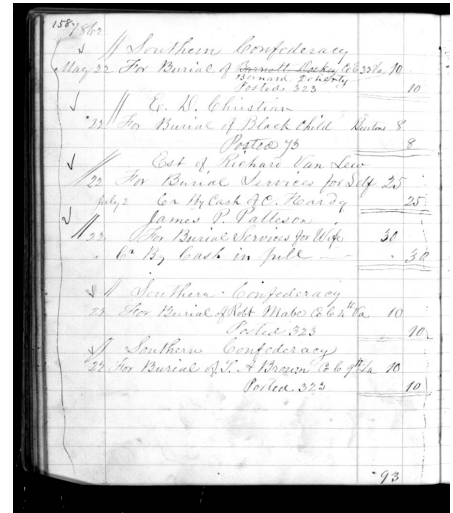 158 1862
// Southern Confederacy
May 22 For Burial of Co E 33 Va 10
Bernard Doherty
Posted 323 10
// E. D. Christian
" 22 For Burial of Black Child 8
Posted 73 8
Est of Richard Van Lew
// 22 For Burial Services for Self 25
July 2 Cr By Cash of C. Hardy 25
James P. Patteson
// 22 For Burial Services for Wife 30
" Cr By Cash in full 30
// Southern Confederacy
22 For Burial of Robt Mabe Va 10
Posted 323 10
// Southern Confederacy
22 For Burial of A Brown 9th Va 10
Posted 323 10
93